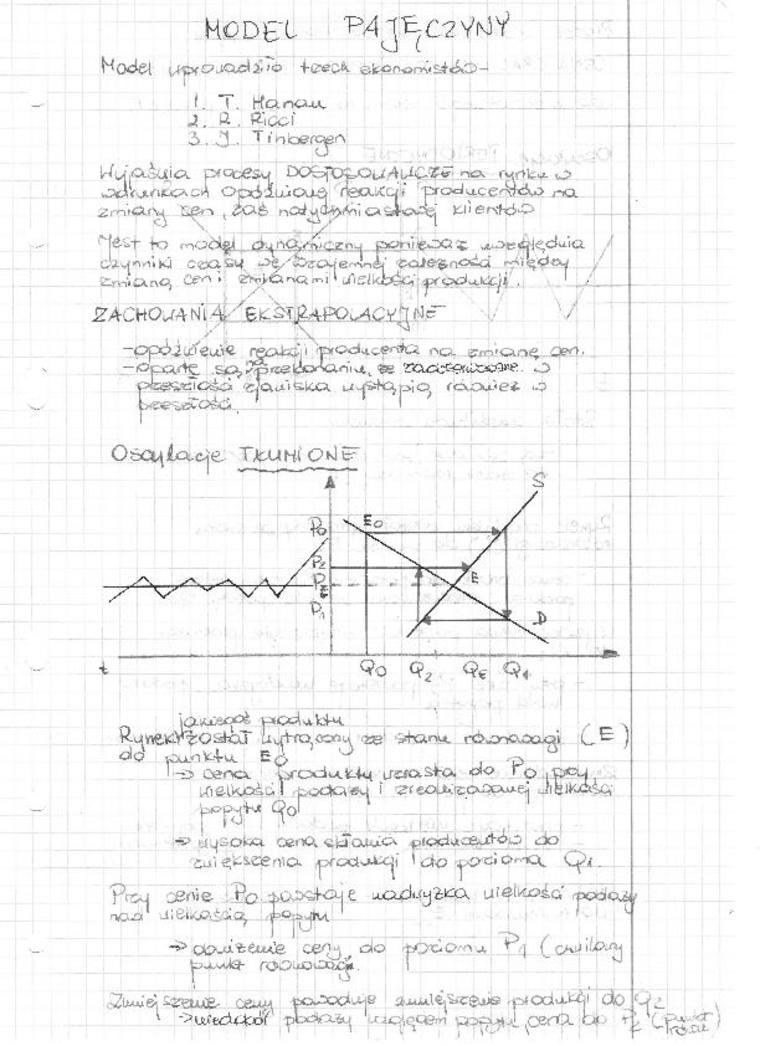 MODEL PAJĘCZYNY
Model wprowadziło trzech ekonomistów-
1. T. Hanau
2. R. Ricci
3. J. Tinbergen
Wyjaśnia procesy DOSTOSOWAWCZE na rynku w
warunkach opóźnionej reakcji producentów na
zmiany cen, zaś natychmiastowej klientów
Jest to model dynamiczny ponieważ uwzględnia
czynniki czasu we wzajemnej zależności między
zmianą cen i zmianami wielkości produkcji.
ZACHOWANIA EKSTRAPOLACYJNE
-opóźnienie reakcji producenta na zmianę cen.
-oparte są na przekonaniu, że zaobserwowane w
przeszłości zjawiska wystąpią również w
przeszłości.
Oscylacje TŁUMIONE
S
P0 E0
P2
PE E
P1 D
t Q0 Q2 QE Q1
jakiegoś produktu
Rynek został wytrącony ze stanu równowagi (E)
do punktu E0
→ cena produktu wzrasta do P0 przy
wielkości podaży i zrealizowanej wielkości
popytu Q0
→ wysoka cena skłania producentów do
zwiększenia produkcji do poziomu Q1.
Przy cenie P0 powstaje nadwyżka wielkości podaży
nad wielkością popytu
→ obniżenie ceny do poziomu P1 (chwilowy
punkt równowagi.
Zmniejszenie ceny powoduje zmniejszenie produkcji do Q2
→ niedobór podaży względem popytu, cena do P2 (punkt